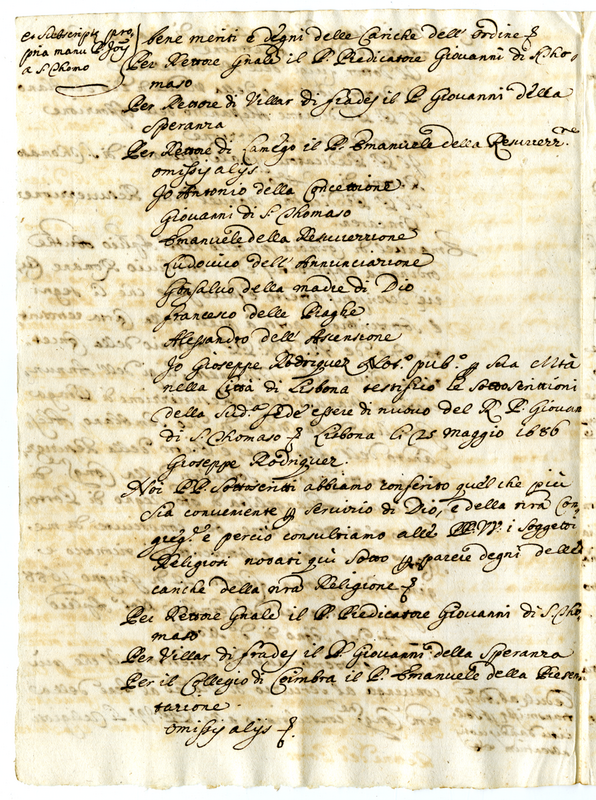 et Subscripte pro,
pria manu P. Jois
a S. Thomo
bene meriti e degni delle Cariche dell'ordine
Per Rettore Gnale il P. Predicatore Giovanni di S. Tho,
maso
Per Rettore di Villar di frades il P. Giovanni della
Speranza
Per Rettore di Lamego il P. Emanuele della Resurrezz.ne
omissis alijs.
Jo Antonio della Concettione
Giovanni di S. Thomaso
Emanuele della Resurrezzione
Ludovico dell'Annunciazione
Gonsalvo della madre di Dio
Francesco delle Piaghe
Alessandro dell'Ascensione
Jo Gioseppe Rodriguez Not.o pub.o p Sua Mtà
nella Città di Lisbona testifico le sottoscrittioni
della Sud.a fede essere di nuovo del R. P. Giovan
di S. Thomaso Lisbona li 25 maggio 1686
Gioseppe Rodriguez.
Noi PP. Sottoscritti abbiamo conferito quel che più
Sia conveniente p servizio di Dio, e della nrã Con,
greg.e e perciò consultiamo alle PP. VV. i Soggetti
Religiosi notati qui Sotto p parere degni delle
cariche della nrã Religione
Per Rettore Gnale il P. Predicatore Giovanni di S. Tho,
maso
Per Villar di frades il P. Giovanni della Speranza
Per il Collegio di Coimbra il P. Emanuele della Presen
tazione
omissis alijs